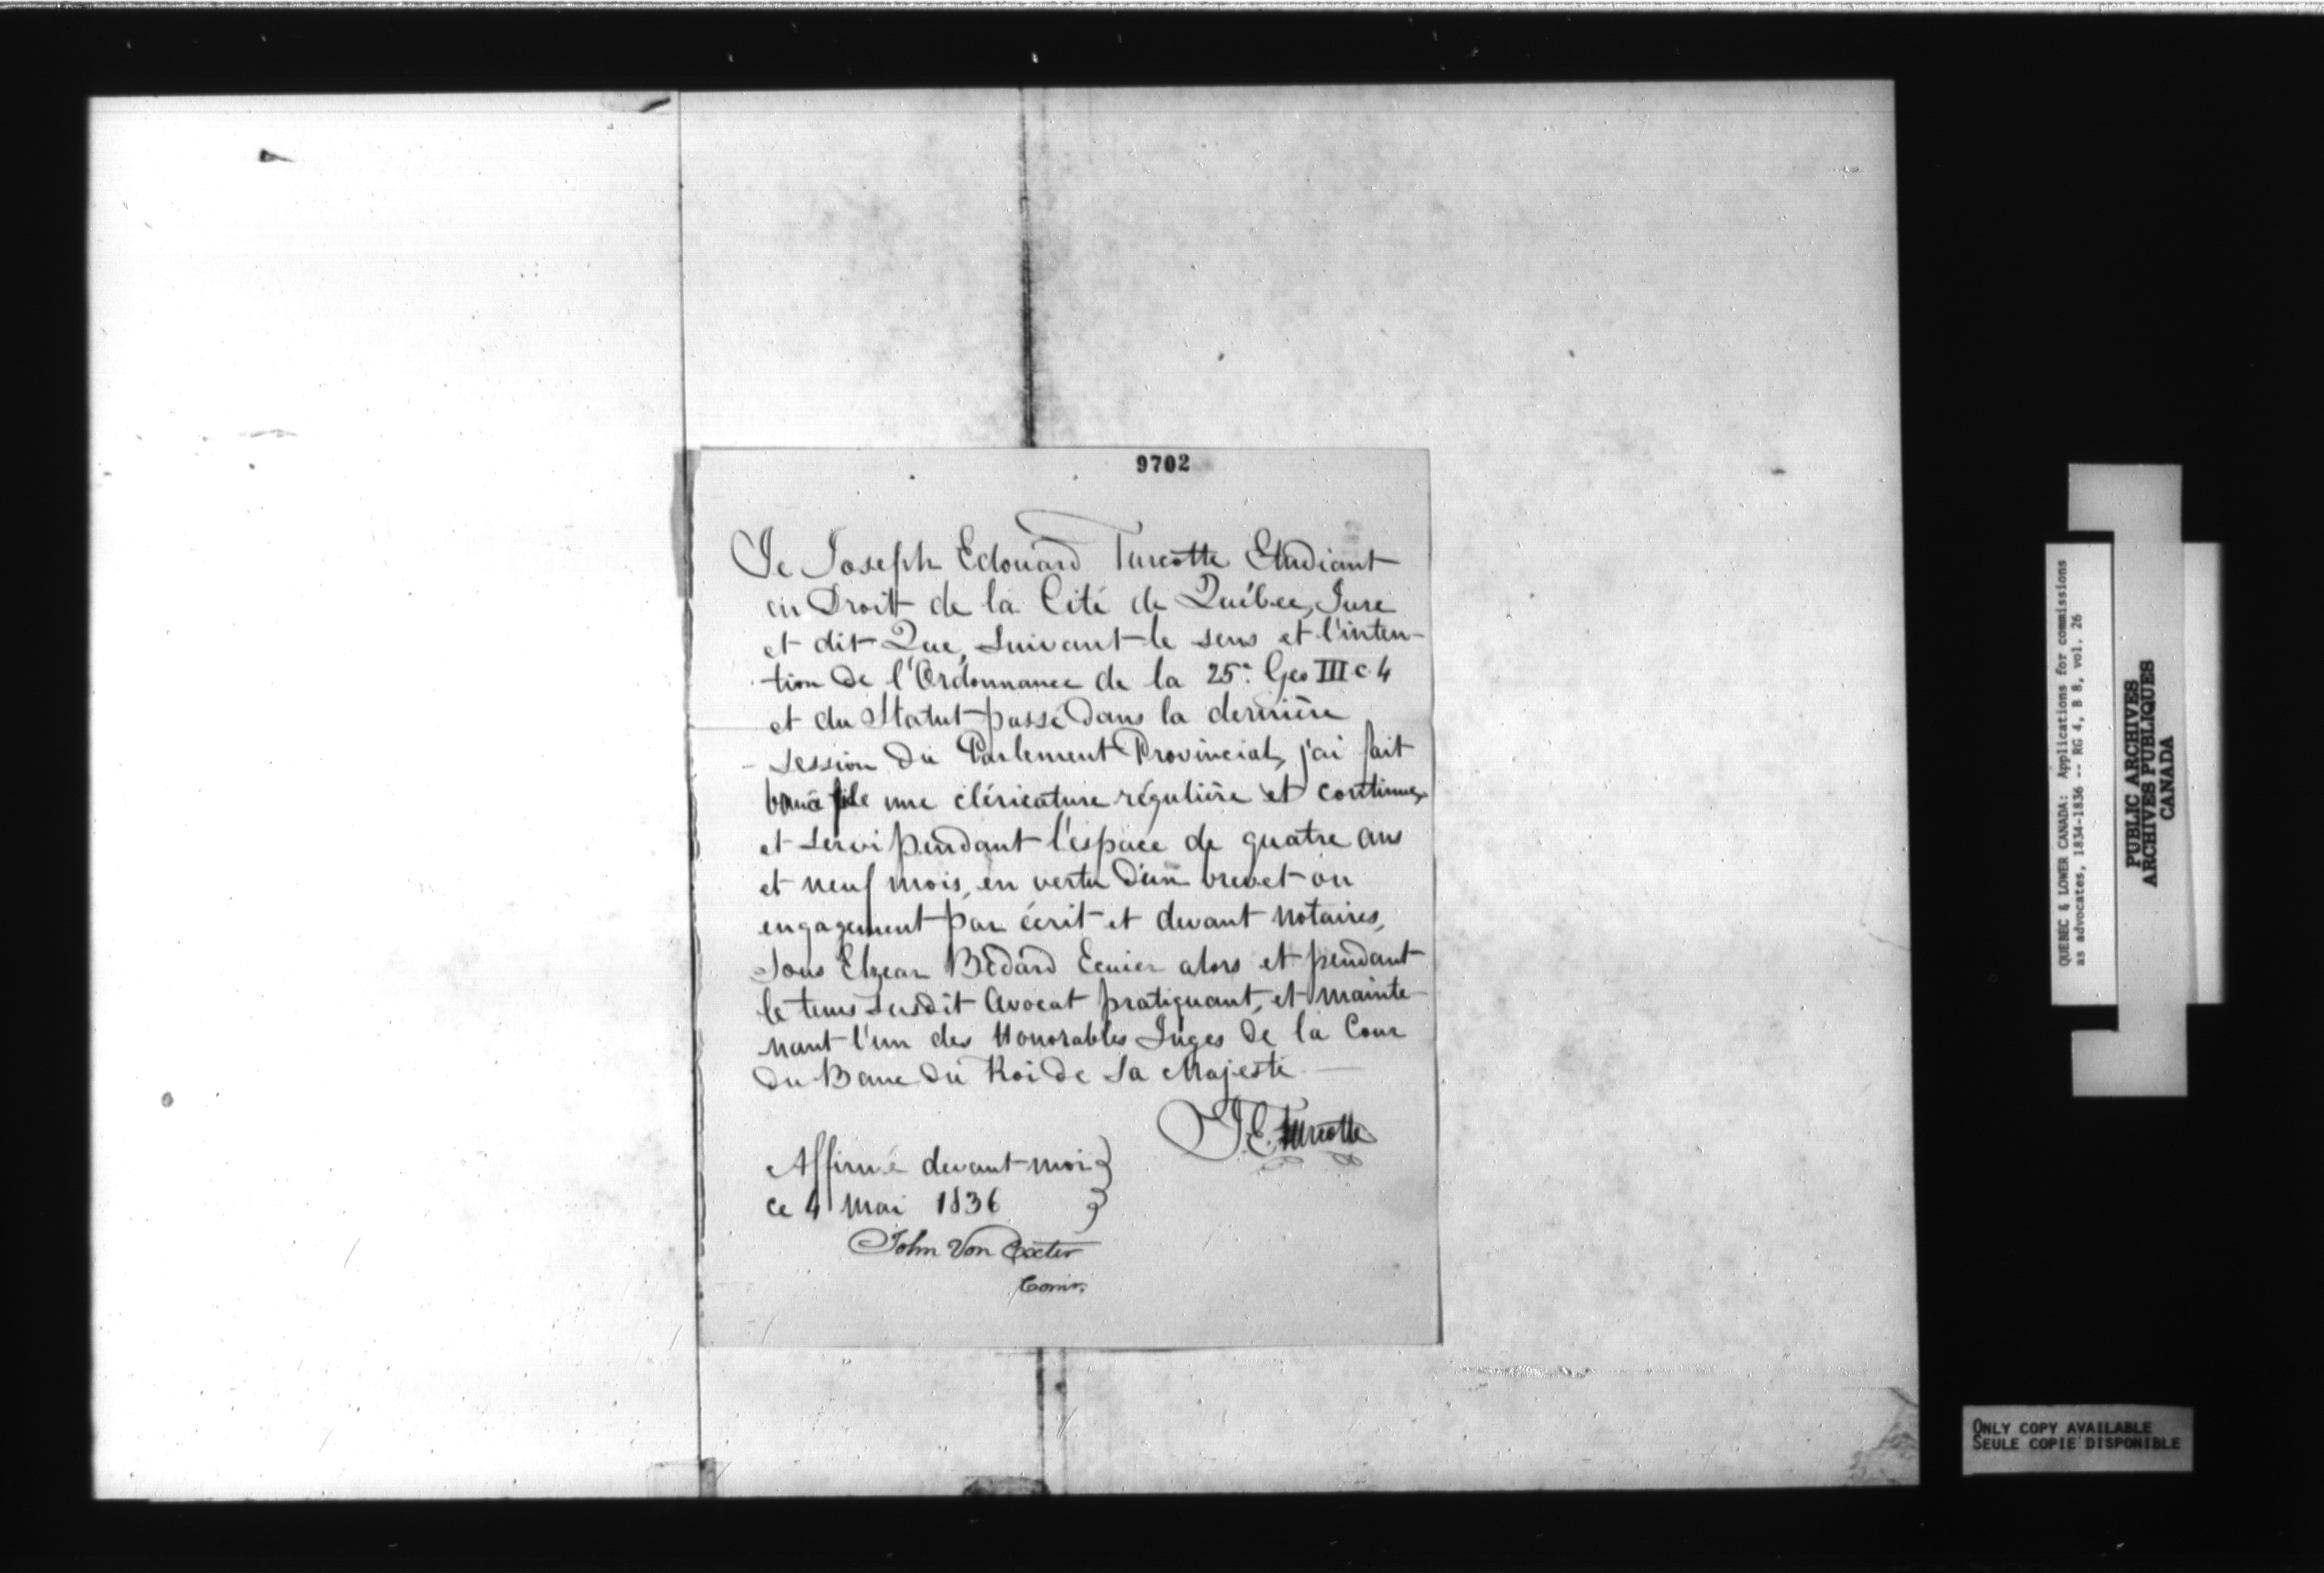 9702
Je Joseph Edouard Turcotte Etudiant
en Droit de la Cité de Québec, Jure
et dit Que, suivant le sens et l'inten-
tion de l'Ordonnance de la 25e. Geo III c 4
et du Statut passé dans la dernière
session du Parlement Provincial, j'ai fait
bonâ fide une cléricature régulière et continue,
et servi pendant l'espace de quatre ans
et neuf mois, en vertu d'un brevet ou
engagement par écrit et devant notaires,
sous Elzear Bédard Ecuier alors et pendant
le tems susdit Avocat pratiquant, et mainte-
nant l'un des Honorables Juges de la Cour
du Banc du Roi de Sa Majesté —
J. E. Turcotte
Affirmé devant moi
ce 4 mai 1836
John Von Exeter
Comr.
QUEBEC & LOWER CANADA: Applications for commissions
as advocates, 1834-1836 -- RG 4, B 8, vol. 26
PUBLIC ARCHIVES
ARCHIVES PUBLIQUES
CANADA
ONLY COPY AVAILABLE
SEULE COPIE DISPONIBLE